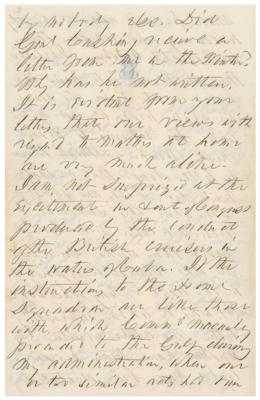 by nobody else. Did
Genl Cushing receive a
letter from me in the Winter?
Why has he not written.
It is evident from your
letter that our views with
regard to matters at home
are very much alike.
I am not surprized at the
excitement in and out of Congress
produced by the conduct
of the British cruisers in
the waters of Cuba. If the
instructions to the Home
Squadron are like those
with which Comre Macauley
proceeded to the Gulf during
my administration, when one
or two similar acts had been